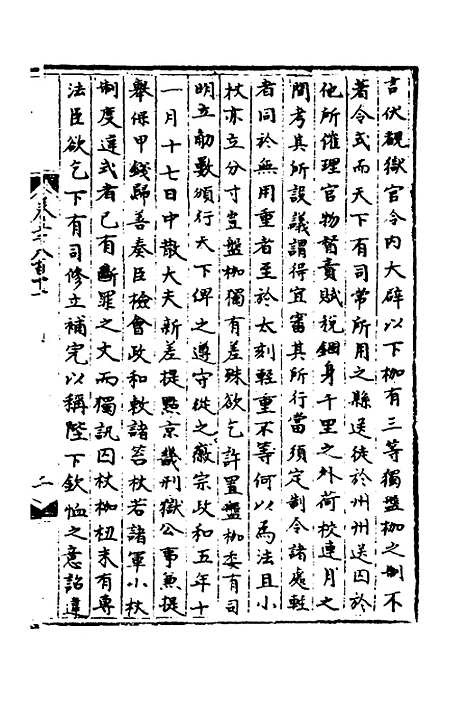 言伏覩獄官令內大辟以下枷有三等獨盤枷之制不
著令式而天下有司常所用之縣送徒於州州送囚於
他所催理官物督責賦稅錮身千里之外荷校連月之
間考其所設議謂得宜審其所行當須定制令諸處輕
者同於無用重者至於太刻輕重不等何以為法且小
杖亦立分寸豈盤枷獨有差殊欲乞許置盤枷委有司
明立勒數頒行天下俾之遵守從之徽宗政和五年十
一月十七日中散大夫新差提點京畿刑獄公事兼提
舉保甲錢歸善奏臣檢會政和敕諸笞杖若諸軍小杖
制度違式者已有斷罪之文而獨訊囚杖枷杻未有專
法臣欲乞下有司修立補完以稱陛下欽恤之意詔違